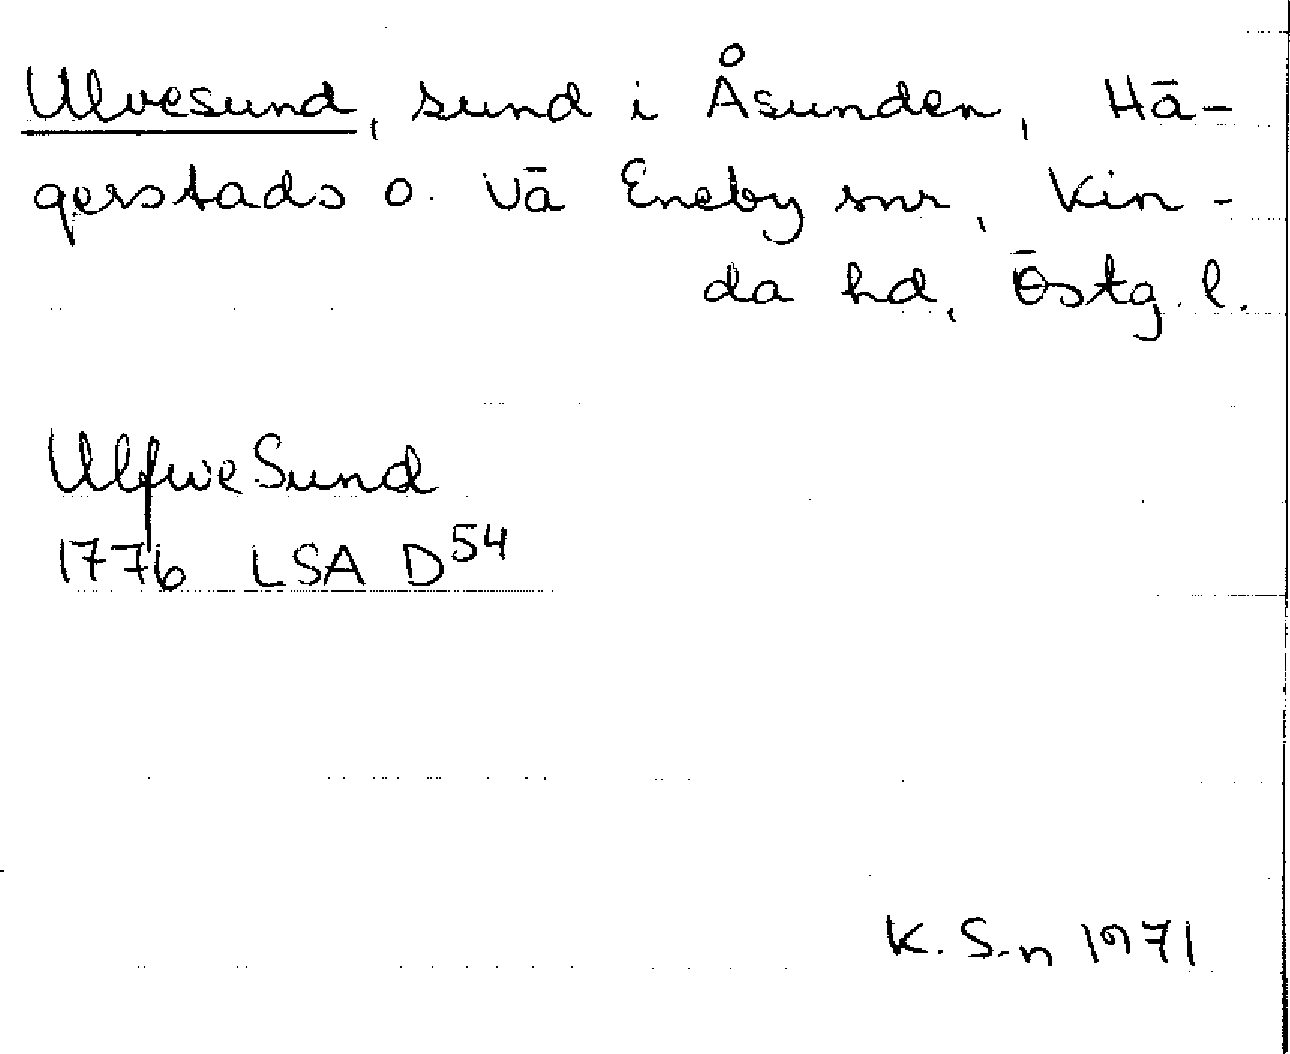 Ulvesund, sund i Åsunden, Hä-
gerstads o. Vä Eneby snr, Kin-
da hd, Östg. l.
Ulfwe Sund
1776 LSA D54
K. S-n 1971